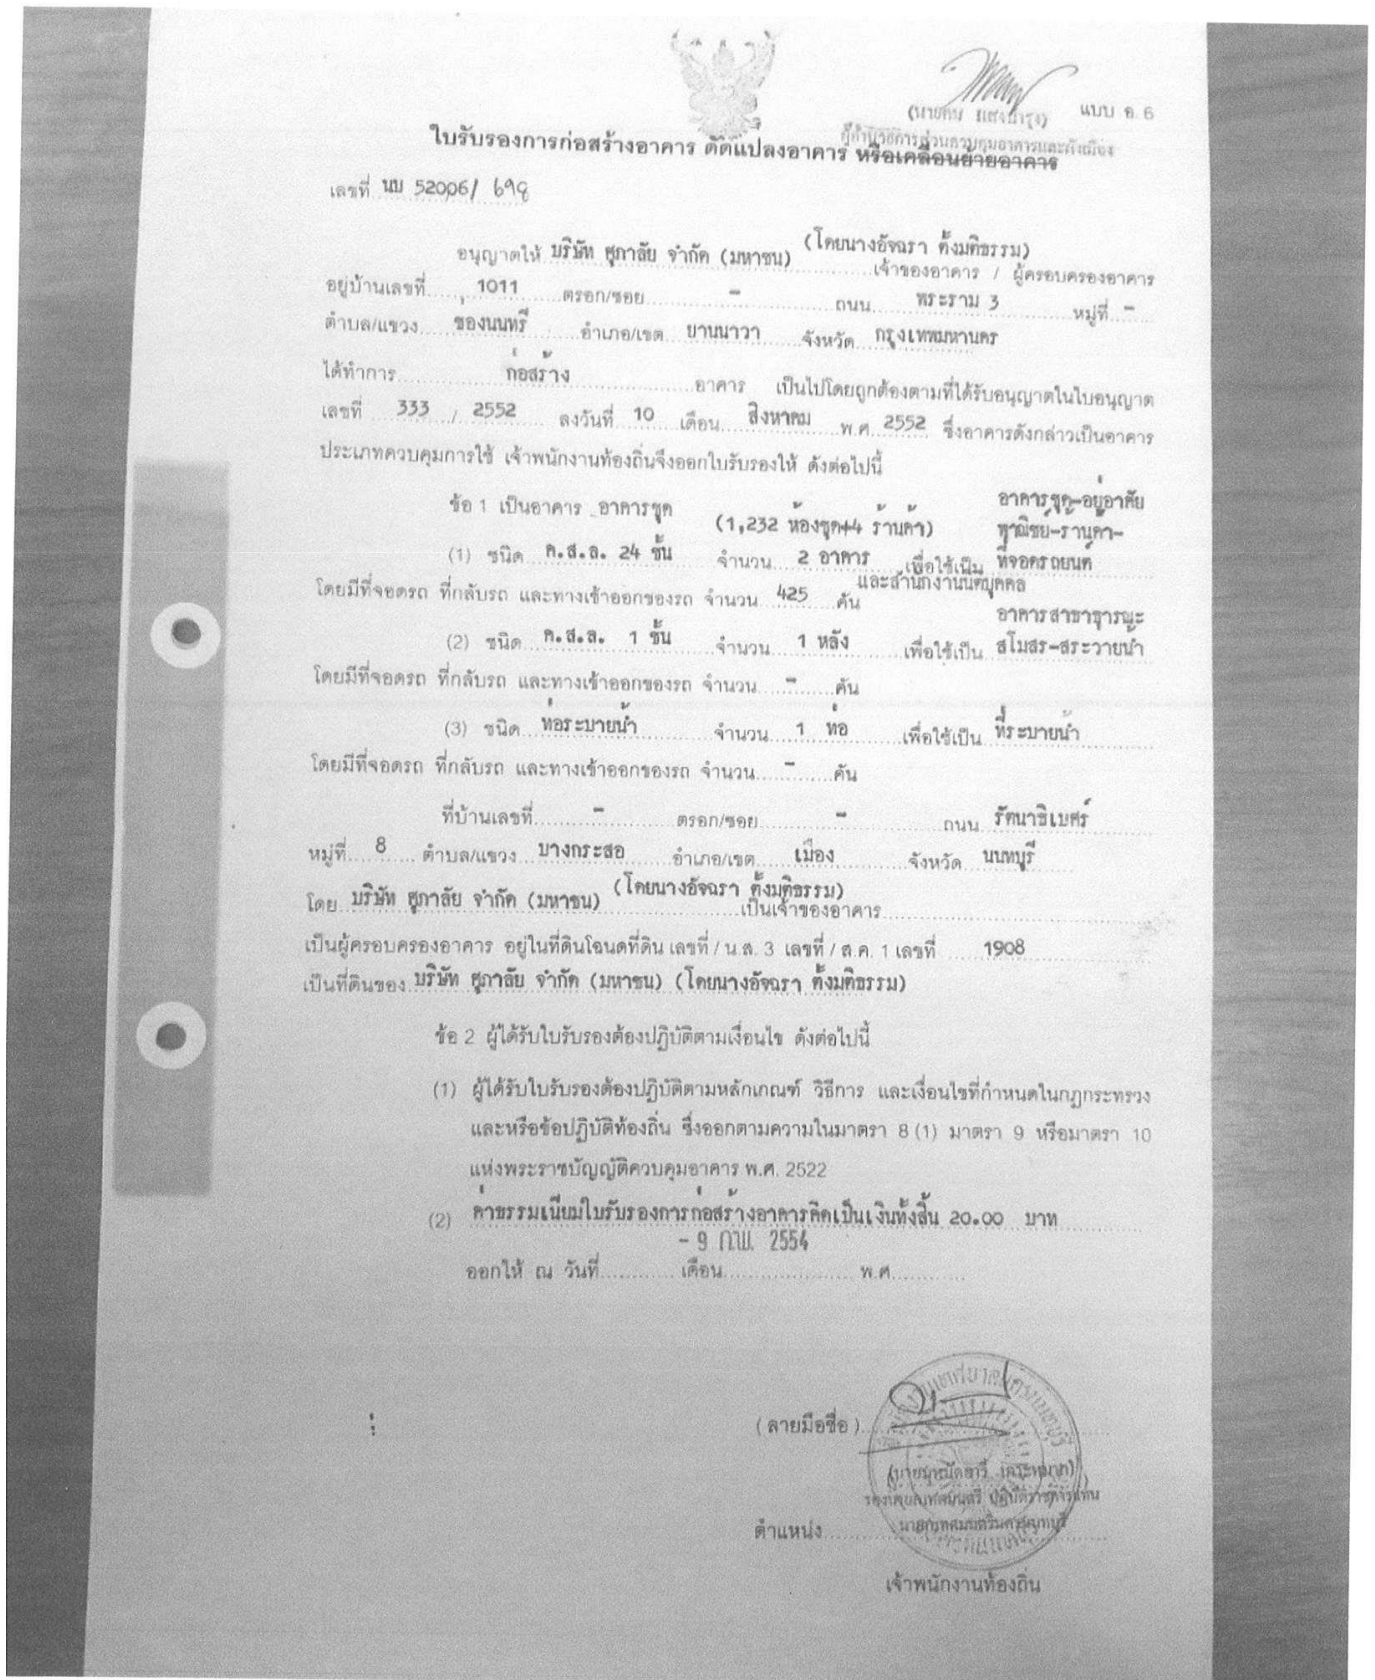 แบบ อ. 6
ผู้อำนวยการส่วนควบคุมอาคารและผังเมือง
ใบรับรองการก่อสร้างอาคาร ดัดแปลงอาคาร หรือเคลื่อนย้ายอาคาร
เลขที่ นบ 52006/ 698
อนุญาตให้ บริษัท ศุภาลัย จำกัด (มหาชน) (โดยนางอัจฉรา ตั้งมติธรรม) เจ้าของอาคาร / ผู้ครอบครองอาคาร
อยู่บ้านเลขที่ 1011 ตรอก/ซอย - ถนน พระราม 3 หมู่ที่ -
ตำบล/แขวง ช่องนนทรี อำเภอ/เขต ยานนาวา จังหวัด กรุงเทพมหานคร
ได้ทำการ ก่อสร้าง อาคาร เป็นไปโดยถูกต้องตามที่ได้รับอนุญาตในใบอนุญาต
เลขที่ 333 / 2552 ลงวันที่ 10 เดือน สิงหาคม พ.ศ. 2552 ซึ่งอาคารดังกล่าวเป็นอาคาร
ประเภทควบคุมการใช้ เจ้าพนักงานท้องถิ่นจึงออกใบรับรองให้ ดังต่อไปนี้
ข้อ 1 เป็นอาคาร อาคารชุด (1,232 ห้องชุด+4 ร้านค้า) อาคารชุด-อยู่อาศัย
พาณิชย์-ร้านค้า-
(1) ชนิด ค.ส.ล. 24 ชั้น จำนวน 2 อาคาร เพื่อใช้เป็น ที่จอดรถยนต์
และสำนักงานนิติบุคคล
โดยมีที่จอดรถ ที่กลับรถ และทางเข้าออกของรถ จำนวน 425 คัน
อาคารสาธารณะ
(2) ชนิด ค.ส.ล. 1 ชั้น จำนวน 1 หลัง เพื่อใช้เป็น สโมสร-สระว่ายน้ำ
โดยมีที่จอดรถ ที่กลับรถ และทางเข้าออกของรถ จำนวน - คัน
(3) ชนิด ท่อระบายน้ำ จำนวน 1 ท่อ เพื่อใช้เป็น ที่ระบายน้ำ
โดยมีที่จอดรถ ที่กลับรถ และทางเข้าออกของรถ จำนวน - คัน
ที่บ้านเลขที่ - ตรอก/ซอย - ถนน รัตนาธิเบศร์
หมู่ที่ 8 ตำบล/แขวง บางกระสอ อำเภอ/เขต เมือง จังหวัด นนทบุรี
โดย บริษัท ศุภาลัย จำกัด (มหาชน) (โดยนางอัจฉรา ตั้งมติธรรม) เป็นเจ้าของอาคาร
เป็นผู้ครอบครองอาคาร อยู่ในที่ดินโฉนดที่ดิน เลขที่ / น.ส. 3 เลขที่ / ส.ค. 1 เลขที่ 1908
เป็นที่ดินของ บริษัท ศุภาลัย จำกัด (มหาชน) (โดยนางอัจฉรา ตั้งมติธรรม)
ข้อ 2 ผู้ได้รับใบรับรองต้องปฏิบัติตามเงื่อนไข ดังต่อไปนี้
(1) ผู้ได้รับใบรับรองต้องปฏิบัติตามหลักเกณฑ์ วิธีการ และเงื่อนไขที่กำหนดในกฎกระทรวง
และหรือข้อปฏิบัติท้องถิ่น ซึ่งออกตามความในมาตรา 8 (1) มาตรา 9 หรือมาตรา 10
แห่งพระราชบัญญัติควบคุมอาคาร พ.ศ. 2522
(2) ค่าธรรมเนียมใบรับรองการก่อสร้างอาคารคิดเป็นเงินทั้งสิ้น 20.00 บาท
- 9 ก.พ. 2554
ออกให้ ณ วันที่ เดือน พ.ศ.
(ลายมือชื่อ)
รองนายกเทศมนตรี ปฏิบัติราชการแทน
ตำแหน่ง นายกเทศมนตรีนครนนทบุรี
เจ้าพนักงานท้องถิ่น